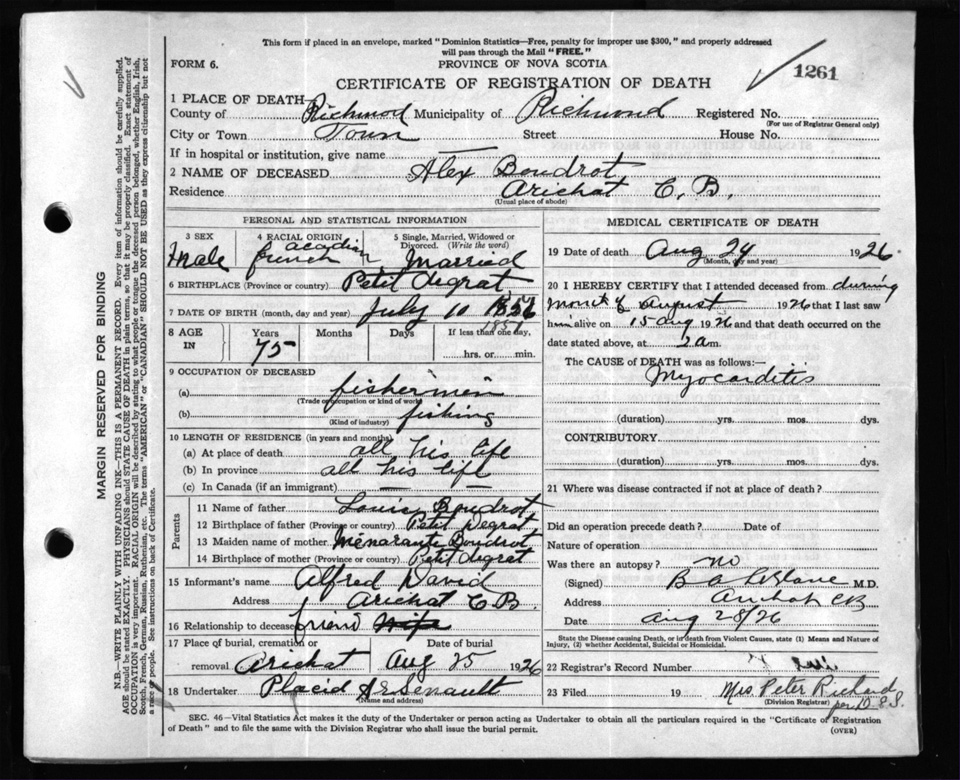 This form if placed in an envelope, marked "Dominion Statistics—Free, penalty for improper use $300," and properly addressed
will pass through the Mail "FREE."
FORM 6.
PROVINCE OF NOVA SCOTIA
1261
CERTIFICATE OF REGISTRATION OF DEATH
1 PLACE OF DEATH—
County of Richmod Municipality of Richmond Registered No.
(For use of Registrar General only)
City or Town Town Street House No.
If in hospital or institution, give name
2 NAME OF DECEASED Alex Boudrot
Residence Arichat C. B.
(Usual place of abode)
PERSONAL AND STATISTICAL INFORMATION
3 SEX 4 RACIAL ORIGIN 5 Single, Married, Widowed or Divorced. (Write the word)
Male french acadian Married
6 BIRTHPLACE (Province or country) Petit degrat
7 DATE OF BIRTH (month, day and year) July 10 1856
1851
8 AGE IN Years Months Days If less than one day,
75 hrs. or min.
9 OCCUPATION OF DECEASED
(a) fishermein
(Trade occupation or kind of work)
(b) fishing
(Kind of industry)
10 LENGTH OF RESIDENCE (in years and months)
(a) At place of death all his life
(b) In province all his life
(c) In Canada (if an immigrant)
Parents
11 Name of father Louis Boudrot
12 Birthplace of father (Province or country) Petit Degrat
13 Maiden name of mother Boudrot
14 Birthplace of mother (Province or country) Petit degrat
15 Informant's name Alfred David
Address Arichat C B.
16 Relationship to deceased friend Wife
17 Place of burial, cremation or removal Arichat Date of burial Aug 25 1926
18 Undertaker Placid Arsenault
(Name and address)
MEDICAL CERTIFICATE OF DEATH
19 Date of death Aug 24 1926
(Month, day and year)
20 I HEREBY CERTIFY that I attended deceased from during
month of august 1926 that I last saw
him alive on 15 aug 1926 and that death occurred on the
date stated above, at 2 a m.
The CAUSE of DEATH was as follows:—
Myocarditis
(duration) yrs. mos. dys.
CONTRIBUTORY
(duration) yrs. mos. dys.
21 Where was disease contracted if not at place of death?
Did an operation precede death? Date of
Nature of operation
Was there an autopsy? no
(Signed) B A LeBlanc M.D.
Address Arichat CB
Date aug 28/26
State the Disease causing Death, or in death from Violent Causes, state (1) Means and Nature of
Injury, (2) whether Accidental, Suicidal or Homicidal.
22 Registrar's Record Number
23 Filed 19 Mrs Peter Richard
(Division Registrar)
per D.E.S.
SEC. 46—Vital Statistics Act makes it the duty of the Undertaker or person acting as Undertaker to obtain all the particulars required in the "Certificate of Registration
of Death" and to file the same with the Division Registrar who shall issue the burial permit.
(OVER)
MARGIN RESERVED FOR BINDING
N.B.—WRITE PLAINLY WITH UNFADING INK—THIS IS A PERMANENT RECORD. Every item of information should be carefully supplied.
AGE should be stated EXACTLY. PHYSICIANS should STATE CAUSE OF DEATH in plain terms, so that it may be properly classified. Exact statement of
OCCUPATION is very important. RACIAL ORIGIN will be described by stating to what people or tongue the deceased person belonged, whether English, Irish,
Scotch, French, German, Russian, Ruthenian, etc. The terms "AMERICAN" or "CANADIAN" SHOULD NOT BE USED as they express citizenship but not
a race or people. See instructions on back of Certificate.